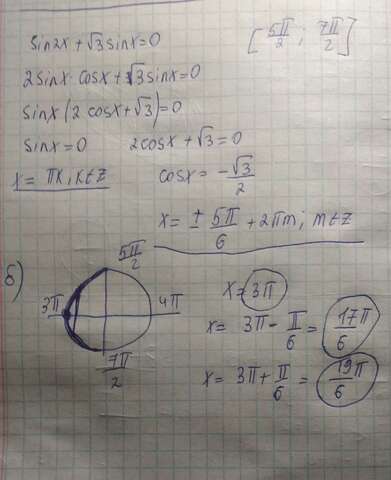 sin2x + √3 sinx = 0 [5π/2 ; 7π/2]
2sinx·cosx + √3 sinx = 0
sinx(2cosx + √3) = 0
sinx = 0 2cosx + √3 = 0
x = πk, k∈Z cosx = -√3/2
x = ± 5π/6 + 2πm; m∈Z
б)
5π/2
3π 4π
7π/2
x = 3π
x = 3π - π/6 = 17π/6
x = 3π + π/6 = 19π/6